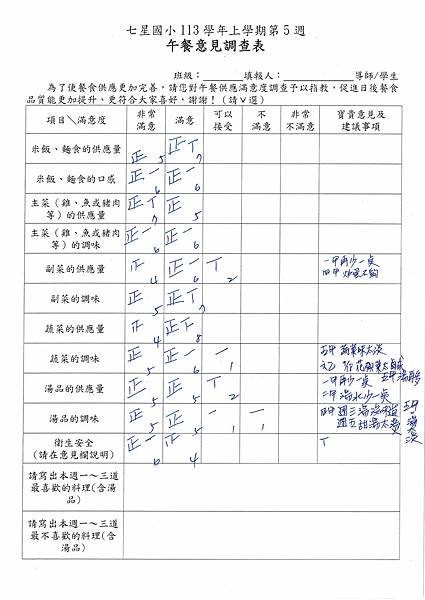 七星國小 113 學年上學期第 5 週
午餐意見調查表
班級：＿＿＿＿＿填報人：＿＿＿＿＿＿＿＿導師/學生
為了使餐食供應更加完善，請您對午餐供應滿意度調查予以指教，促進日後餐食
品質能更加提升、更符合大家喜好，謝謝！（請∨選）
項目＼滿意度 非常滿意 滿意 可以接受 不滿意 非常不滿意 寶貴意見及建議事項
米飯、麵食的供應量 正 5 正丅 7
米飯、麵食的口感 正一 6 正一 6
主菜（雞、魚或豬肉等）的供應量 正丅 7 正 5
主菜（雞、魚或豬肉等）的調味 正一 6 正一 6
副菜的供應量 4 正一 6 丅 2 一甲再少一點
四甲
副菜的調味 正 5 正丅 7
蔬菜的供應量 4 8
蔬菜的調味 正 5 正一 6 一 1 太淡
湯品的供應量 正 5 正 5 丅 2 一甲再少一點
二甲湯水少一點
湯品的調味 正 5 正 5 一 1 一 1 四甲週三湯沒味道
週五甜湯太
衛生安全（請在意見欄說明） 正一 6 4 丅
請寫出本週一～三道最喜歡的料理(含湯品)
請寫出本週一～三道最不喜歡的料理(含湯品)